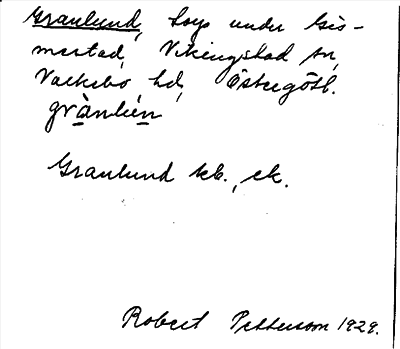 Granlund, torp under Gis-
mestad, Vikingstad sn,
Valkebo hd, Östergötl.
Granlund kb., ek.
Robert Pettersson 1929.